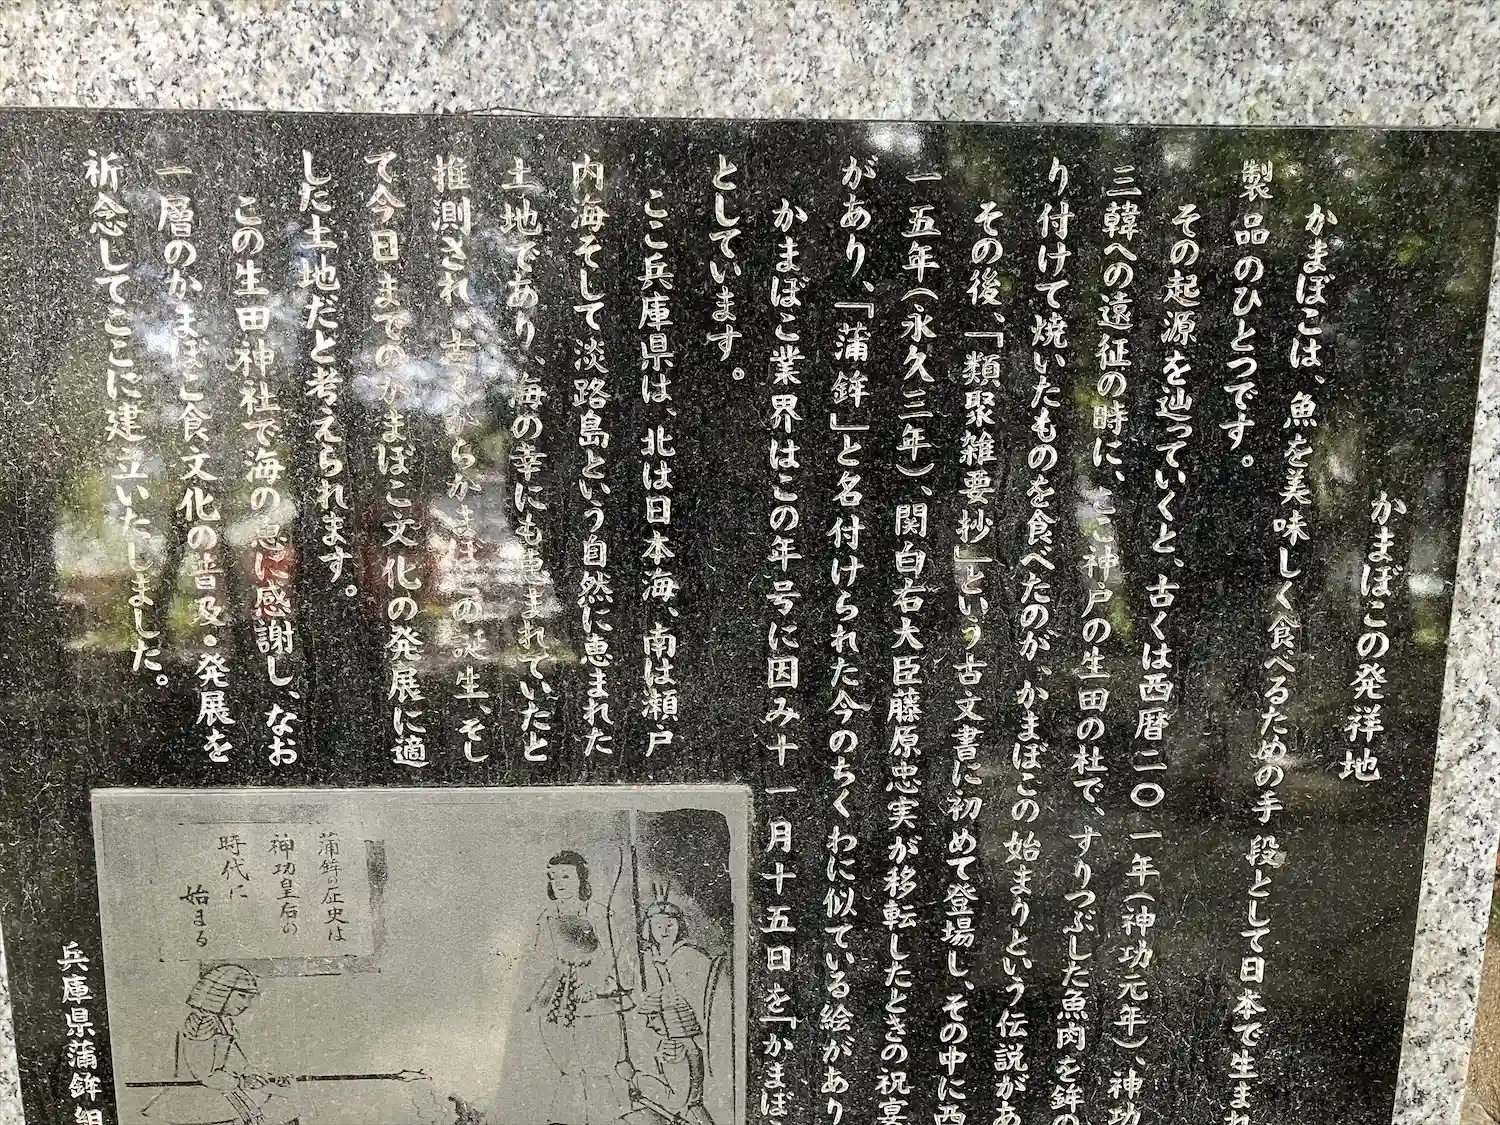 かまぼこの発祥地
かまぼこは、魚を美味しく食べるための手段として日本で生まれ
製品のひとつです。
その起源を辿っていくと、古くは西暦二〇一年(神功元年)、神功
三韓への遠征の時に、ここ神戸の生田の杜で、すりつぶした魚肉を鉾の
り付けて焼いたものを食べたのが、かまぼこの始まりという伝説があ
その後、「類聚雑要抄」という古文書に初めて登場し、その中に西
一五年(永久三年)、関白右大臣藤原忠実が移転したときの祝宴
があり、「蒲鉾」と名付けられた今のちくわに似ている絵があり
かまぼこ業界はこの年号に因み十一月十五日を「かまぼこ
としています。
ここ兵庫県は、北は日本海、南は瀬戸
内海そして淡路島という自然に恵まれた
土地であり、海の幸にも恵まれていたと
推測され、古くからかまぼこの誕生、そし
て今日までのかまぼこ文化の発展に適
した土地だと考えられます。
この生田神社で海の恵に感謝し、なお
一層のかまぼこ食文化の普及・発展を
祈念してここに建立いたしました。
蒲鉾の歴史は
神功皇后の
時代に
始まる
兵庫県蒲鉾組